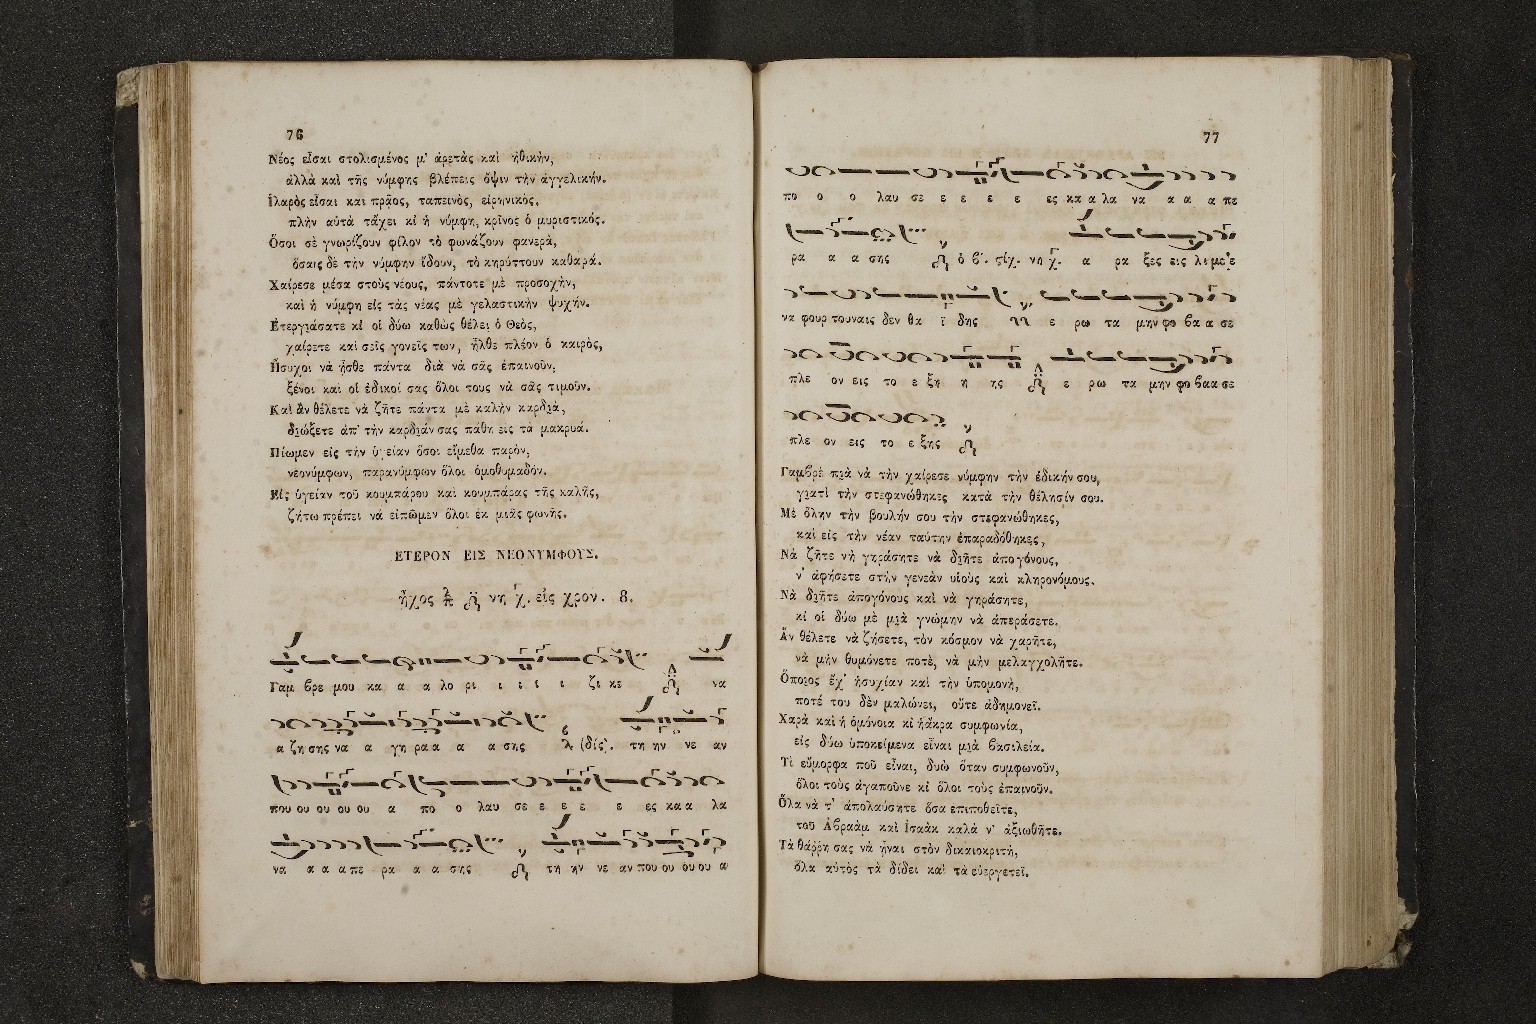 76
Νέος εἶσαι στολισμένος μ' ἀρετὰς καὶ ἠθικὴν,
ἀλλὰ καὶ τῆς νύμφης βλέπεις ὄψιν τὴν ἀγγελικήν.
Ἱλαρὸς εἶσαι καὶ πρᾷος, ταπεινὸς, εἰρηνικὸς,
πλὴν αὐτὰ τἄχει κἰ ἡ νύμφη, κρῖνος ὁ μυριστικός.
Ὅσοι σὲ γνωρίζουν φίλον τὸ φωνάζουν φανερὰ,
ὅσαις δὲ τὴν νύμφην ἴδουν, τὸ κηρύττουν καθαρά.
Χαίρεσε μέσα στοὺς νέους, πάντοτε μὲ προσοχὴν,
καὶ ἡ νύμφη εἰς τὰς νέας μὲ γελαστικὴν ψυχήν.
Ἐτεργιάσατε κἰ οἱ δύω καθὼς θέλει ὁ Θεὸς,
χαίρετε καὶ σεῖς γονεῖς των, ἦλθε πλέον ὁ καιρὸς,
Ἥσυχοι νὰ ἦσθε πάντα διὰ νὰ σᾶς ἐπαινοῦν,
ξένοι καὶ οἱ ἐδικοί σας ὅλοι τους νὰ σᾶς τιμοῦν.
Καὶ ἂν θέλετε νὰ ζῆτε πάντα μὲ καλὴν καρδιὰ,
διώξετε ἀπ' τὴν καρδιάν σας πάθη εἰς τὰ μακρυά.
Πίωμεν εἰς τὴν ὑγείαν ὅσοι εἴμεθα παρὸν,
νεονύμφων, παρανύμφων ὅλοι ὁμοθυμαδόν.
Εἰς ὑγείαν τοῦ κουμπάρου καὶ κουμπάρας τῆς καλῆς,
ζήτω πρέπει νὰ εἰπῶμεν ὅλοι ἐκ μιᾶς φωνῆς.
ΕΤΕΡΟΝ ΕΙΣ ΝΕΟΝΥΜΦΟΥΣ.
ἦχος νη χ. εἰς χρον. 8.
Γαμ βρε μου κα α α λο ρι ι ι ι ι ζι κε να
α ζη σης να α γη ρα α α α σης (δίς). τη ην νε αν
που ου ου ου ου α πο ο λαυ σε ε ε ε ε ες κα α λα
να α α α πε ρα α α σης τη ην νε αν που ου ου ου α
77
πο ο ο λαυ σε ε ε ε ε ες κα α λα να α α α πε
ρα α α σης ὁ β'. ςίχ. νη χ. α ρα ξες εις λι με ε
να φουρ τουναις δεν θα ϊ δης ε ρω τα μην φο βα α σε
πλε ον εις το ε ξη η ης ε ρω τα μην φο βα α σε
πλε ον εις το ε ξης
Γαμβρὲ πιὰ νὰ τὴν χαίρεσε νύμφην τὴν ἐδικήν σου,
γιατὶ τὴν στεφανώθηκες κατὰ τὴν θέλησίν σου.
Μὲ ὅλην τὴν βουλήν σου τὴν στεφανώθηκες,
καὶ εἰς τὴν νέαν ταύτην ἐπαραδόθηκες,
Νὰ ζῆτε νὴ γηράσητε νὰ διῆτε ἀπογόνους,
ν' ἀφήσετε στὴν γενεὰν υἱοὺς καὶ κληρονόμους.
Νὰ διῆτε ἀπογόνους καὶ νὰ γηράσητε,
κἰ οἱ δύω μὲ μιὰ γνώμην νὰ ἀπεράσετε.
Ἂν θέλετε νὰ ζήσετε, τὸν κόσμον νὰ χαρῆτε,
νὰ μὴν θυμόνετε ποτὲ, νὰ μὴν μελαγχολῆτε.
Ὅποιος ἔχ' ἡσυχίαν καὶ τὴν ὑπομονὴ,
ποτέ του δὲν μαλώνει, οὔτε ἀδημονεῖ.
Χαρὰ καὶ ἡ ὁμόνοια κἰ ἡ ἄκρα συμφωνία,
εἰς δύω ὑποκείμενα εἶναι μιὰ βασιλεία.
Τὶ εὔμορφα ποῦ εἶναι, δυὼ ὅταν συμφωνοῦν,
ὅλοι τοὺς ἀγαποῦνε κἰ ὅλοι τοὺς ἐπαινοῦν.
Ὅλα νὰ τ' ἀπολαύσητε ὅσα ἐπιποθεῖτε,
τοῦ Ἀβραὰμ καὶ Ἰσαὰκ καλὰ ν' ἀξιωθῆτε.
Τὰ θάῤῥη σας νὰ ἦναι στὸν δικαιοκριτὴ,
ὅλα αὐτὸς τὰ δίδει καὶ τὰ εὐεργετεῖ.